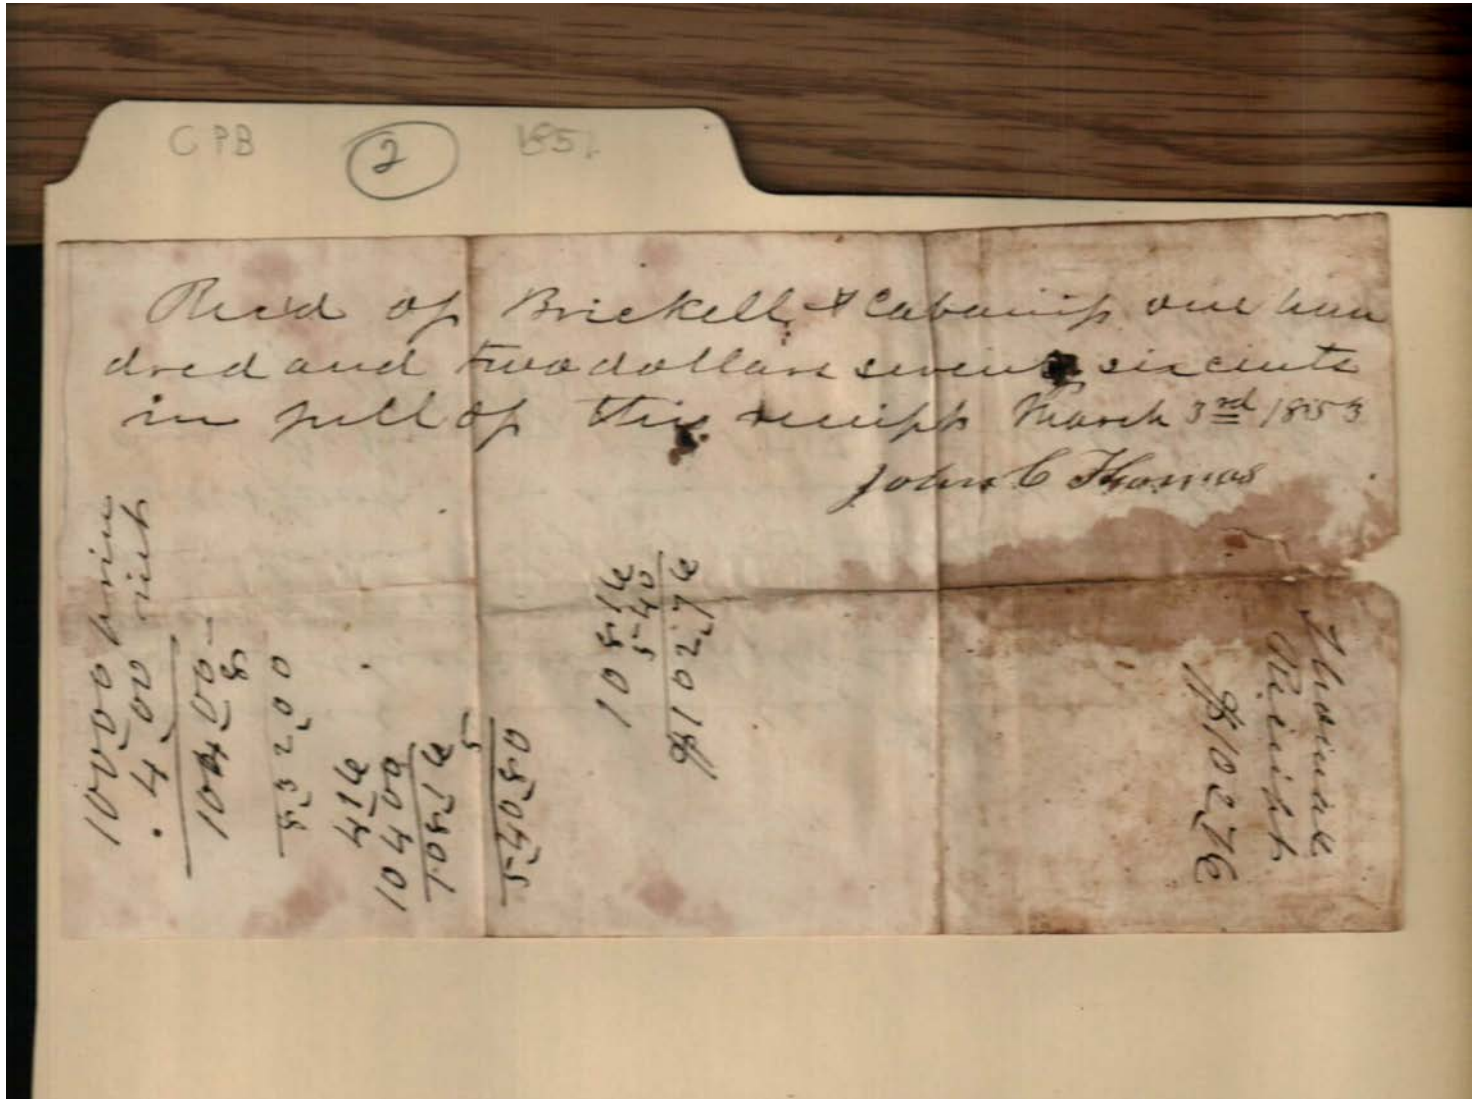 CPB 2 1851
Recd of Brickell & Cabaniss one hun
dred and two dollars seventy six cents
in full of this receipt March 3rd 1853
John C Thomas
100,00 prin
4,00 int
104,00
8
8,32,00
4,16
104,00
108,16
5
5,40,80
108,16
5,40
$102,76
Receipt
$102,76